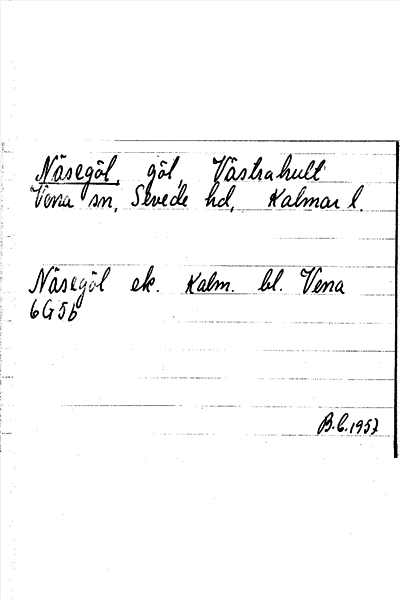 Näsegöl, göl, Västrahult
Vena sn, Sevede hd, Kalmar l.
Näsegöl ek. Kalm. bl. Vena
6G5b
B.C. 1957